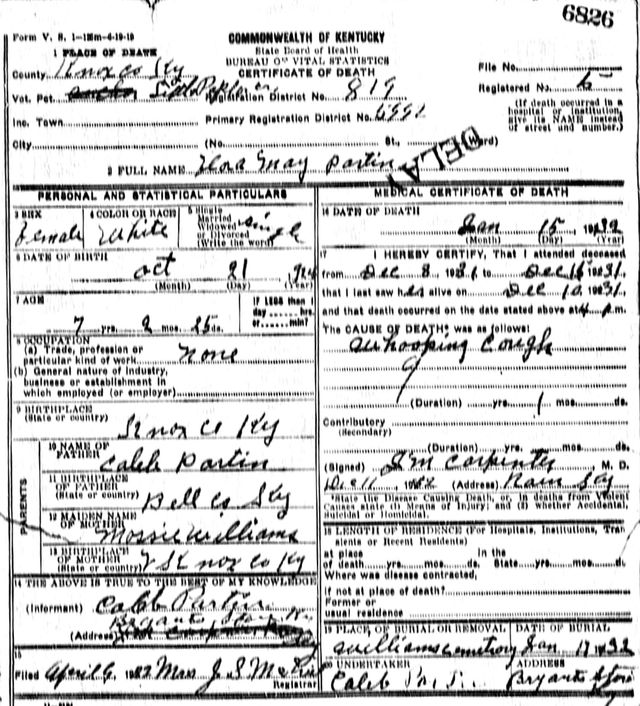 6826
Form V. S. 1-125m-6-19-19
COMMONWEALTH OF KENTUCKY
State Board of Health
BUREAU OF VITAL STATISTICS
CERTIFICATE OF DEATH
1 PLACE OF DEATH
County Knox co Ky
File No.
Vot. Pct.
Registration District No. 819
Registered No. 5
Inc. Town
Primary Registration District No. 6991
(If death occurred in a hospital or institution, give its NAME instead of street and number.)
City (No. St., Ward)
DELAY
2 FULL NAME Flora May Partin
PERSONAL AND STATISTICAL PARTICULARS
3 SEX
Female
4 COLOR OR RACE
White
5 Single
Married
Widowed
or Divorced
(Write the word)
Single
6 DATE OF BIRTH
Oct 21 1924
(Month) (Day) (Year)
7 AGE
7 yrs. 2 mos. 25 ds.
If LESS than 1
day hrs.
or min?
8 OCCUPATION
(a) Trade, profession or
particular kind of work None
(b) General nature of industry,
business or establishment in
which employed (or employer)
9 BIRTHPLACE
(State or country)
Knox Co Ky
PARENTS
10 NAME OF
FATHER
Caleb Partin
11 BIRTHPLACE
OF FATHER
(State or country)
Bell co Ky
12 MAIDEN NAME
OF MOTHER
Williams
13 BIRTHPLACE
OF MOTHER
(State or country)
Knox co Ky
14 THE ABOVE IS TRUE TO THE BEST OF MY KNOWLEDGE
(Informant) Caleb Partin
(Address) Bryants Store Ky
15
Filed April 6 1932 Mrs J S
Registrar
MEDICAL CERTIFICATE OF DEATH
16 DATE OF DEATH
Jan 15 1932
(Month) (Day) (Year)
17 I HEREBY CERTIFY, That I attended deceased
from Dec 8 1931 to Dec 1931,
that I last saw her alive on Dec 10 1931,
and that death occurred on the date stated above at 4 P.m.
The CAUSE OF DEATH* was as follows:
Whooping Cough
(Duration) yrs. 1 mos. ds.
Contributory
(Secondary)
(Duration) yrs. mos. ds.
(Signed) S M Carpenter M. D.
(Address)
*State the Disease Causing Death, or, in deaths from Violent
Causes state (1) Means of Injury; and (2) whether Accidental,
Suicidal or Homicidal.
18 LENGTH OF RESIDENCE (For Hospitals, Institutions, Transients or Recent Residents)
at place In the
of death yrs. mos. ds. State yrs. mos. ds.
Where was disease contracted,
if not at place of death?
Former or
usual residence
19 PLACE OF BURIAL OR REMOVAL
Williams cemetery
DATE OF BURIAL
Jan 17 1932
20 UNDERTAKER
Caleb
ADDRESS
Bryants Store